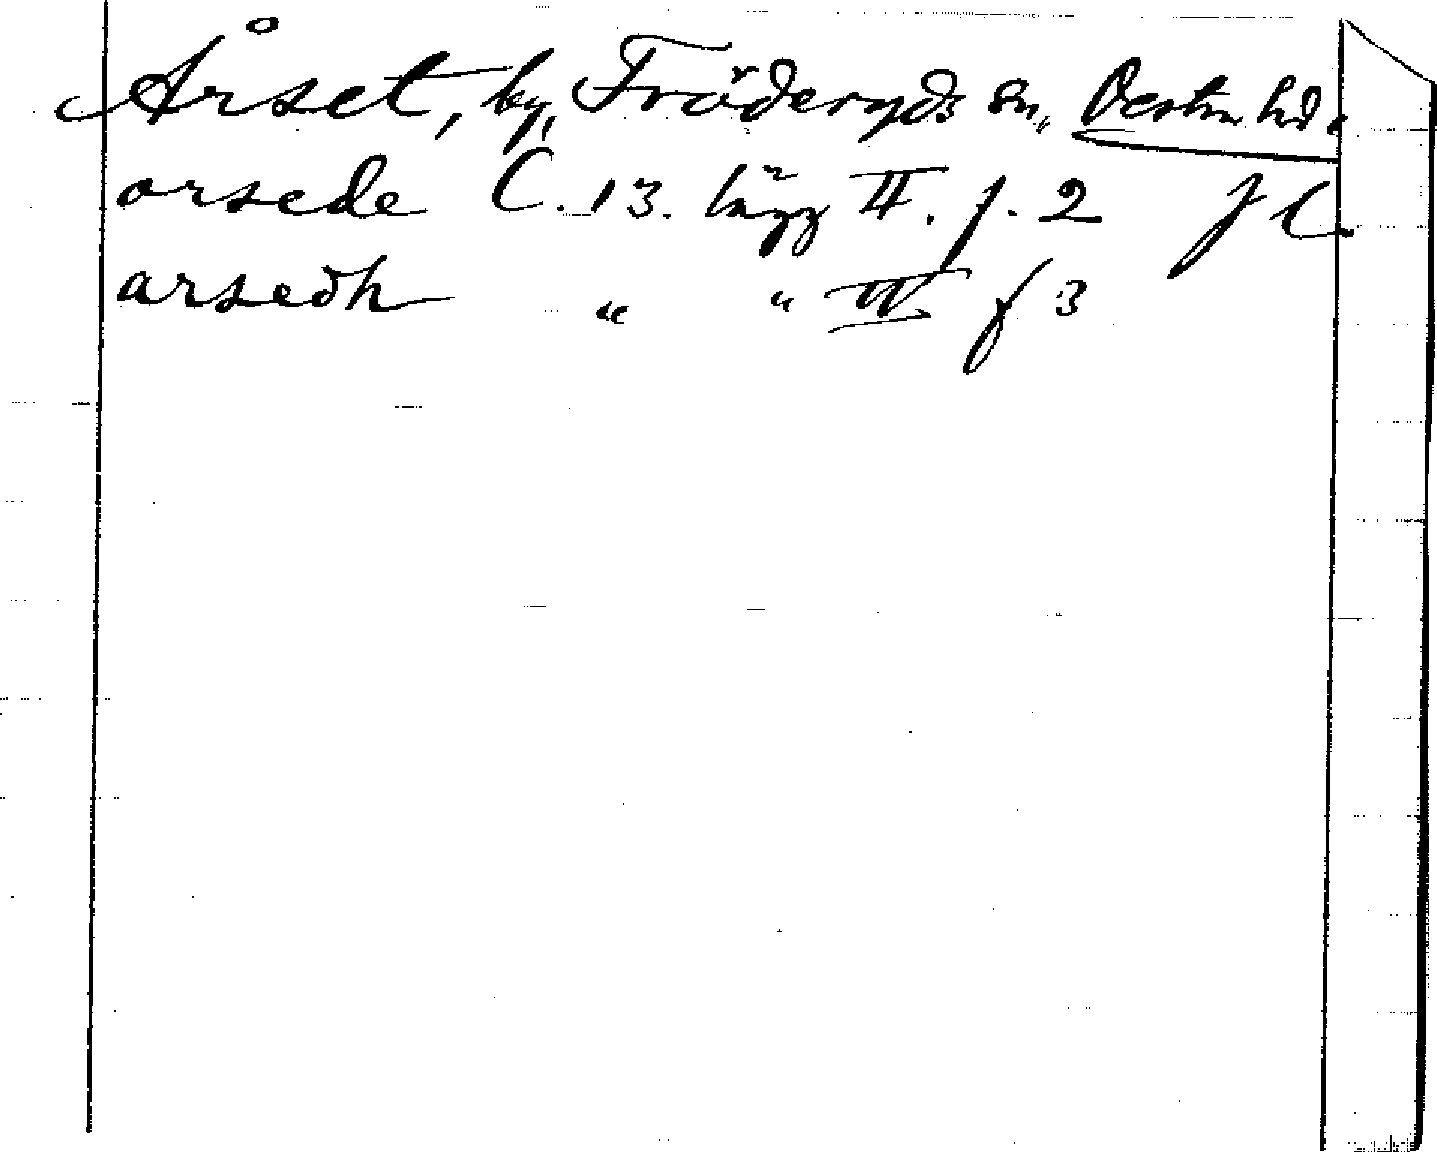 Årset, by, Fröderyds sn, Vestra hd.
orsede C. 13. lägg II. f. 2 J C
arsedh " " II f 3